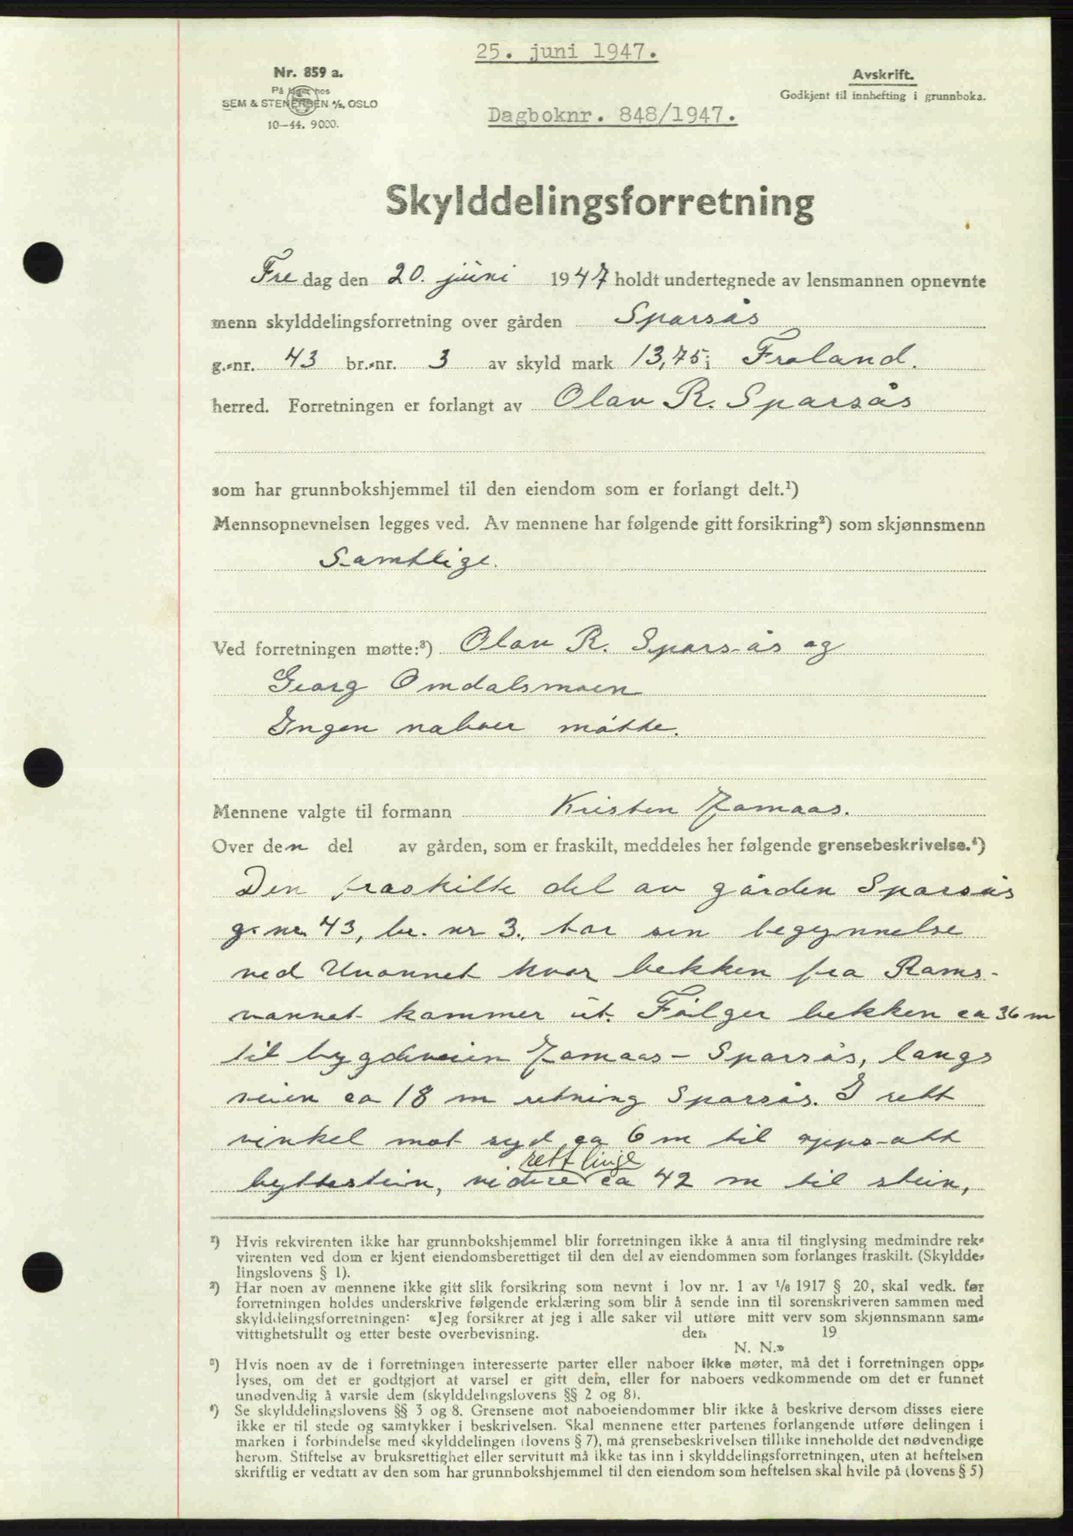 25. juni 1947.
Nr. 859 a.
På lager hos
SEM & STENERSEN A/S, OSLO
10—44. 9000.
Avskrift.
Godkjent til innhefting i grunnboka.
Dagboknr. 848/1947.
Skylddelingsforretning
Fredag den 20. juni 1947 holdt undertegnede av lensmannen opnevnte
menn skylddelingsforretning over gården Sparsås
g.-nr. 43 br.-nr. 3 av skyld mark 13,75 i Froland.
herred. Forretningen er forlangt av Olav R. Sparsås
som har grunnbokshjemmel til den eiendom som er forlangt delt.¹)
Mennsopnevnelsen legges ved. Av mennene har følgende gitt forsikring²) som skjønnsmenn
Samtlige.
Ved forretningen møtte:³) Olav R. Sparsås og
Georg Omdalsmoen
Ingen naboer møtte.
Mennene valgte til formann Kristen Jomaas.
Over den del av gården, som er fraskilt, meddeles her følgende grensebeskrivelse.⁴)
Den fraskilte del av gården Sparsås
g. nr. 43, br. nr 3. tar sin begynnelse
ved hvor bekken fra Rams-
vannet kommer ut. Følger bekken ca 36 m
til bygdeveien Jomaas - Sparsås, langs
veien ca 18 m retning Sparsås. I rett
vinkel mot syd ca 6 m til oppsatt
rett linje
byttestein, videre ca 42 m til stein,
¹) Hvis rekvirenten ikke har grunnbokshjemmel blir forretningen ikke å anta til tinglysing medmindre rek-
virenten ved dom er kjent eiendomsberettiget til den del av eiendommen som forlanges fraskilt. (Skyldde-
lingslovens § 1).
²) Har noen av mennene ikke gitt slik forsikring som nevnt i lov nr. 1 av ¹/₆ 1917 § 20, skal vedk. før
forretningen holdes underskrive følgende erklæring som blir å sende inn til sorenskriveren sammen med
skylddelingsforretningen: «Jeg forsikrer at jeg i alle saker vil utføre mitt verv som skjønnsmann sam-
vittighetsfullt og etter beste overbevisning. den 19
N. N.»
³) Hvis noen av de i forretningen interesserte parter eller naboer ikke møter, må det i forretningen opp-
lyses, om det er godtgjort at varsel er gitt dem, eller for naboers vedkommende om det er funnet
unødvendig å varsle dem (skylddelingslovens §§ 2 og 8).
⁴) Se skylddelingslovens §§ 3 og 8. Grensene mot naboeiendommer blir ikke å beskrive dersom disses eiere
ikke er til stede og samtykker i beskrivelsen. Skal mennene etter partenes forlangende utføre delingen i
marken i forbindelse med skylddelingen (lovens § 7), må grensebeskrivelsen tillike inneholde det nødvendige
herom. Stiftelse av bruksrettighet eller servitutt må ikke tas inn i skylddelingsforretningen, uten at heftelsen
skriftlig er vedtatt av den som har grunnbokshjemmel til den eiendom som heftelsen skal hvile på (lovens § 5)